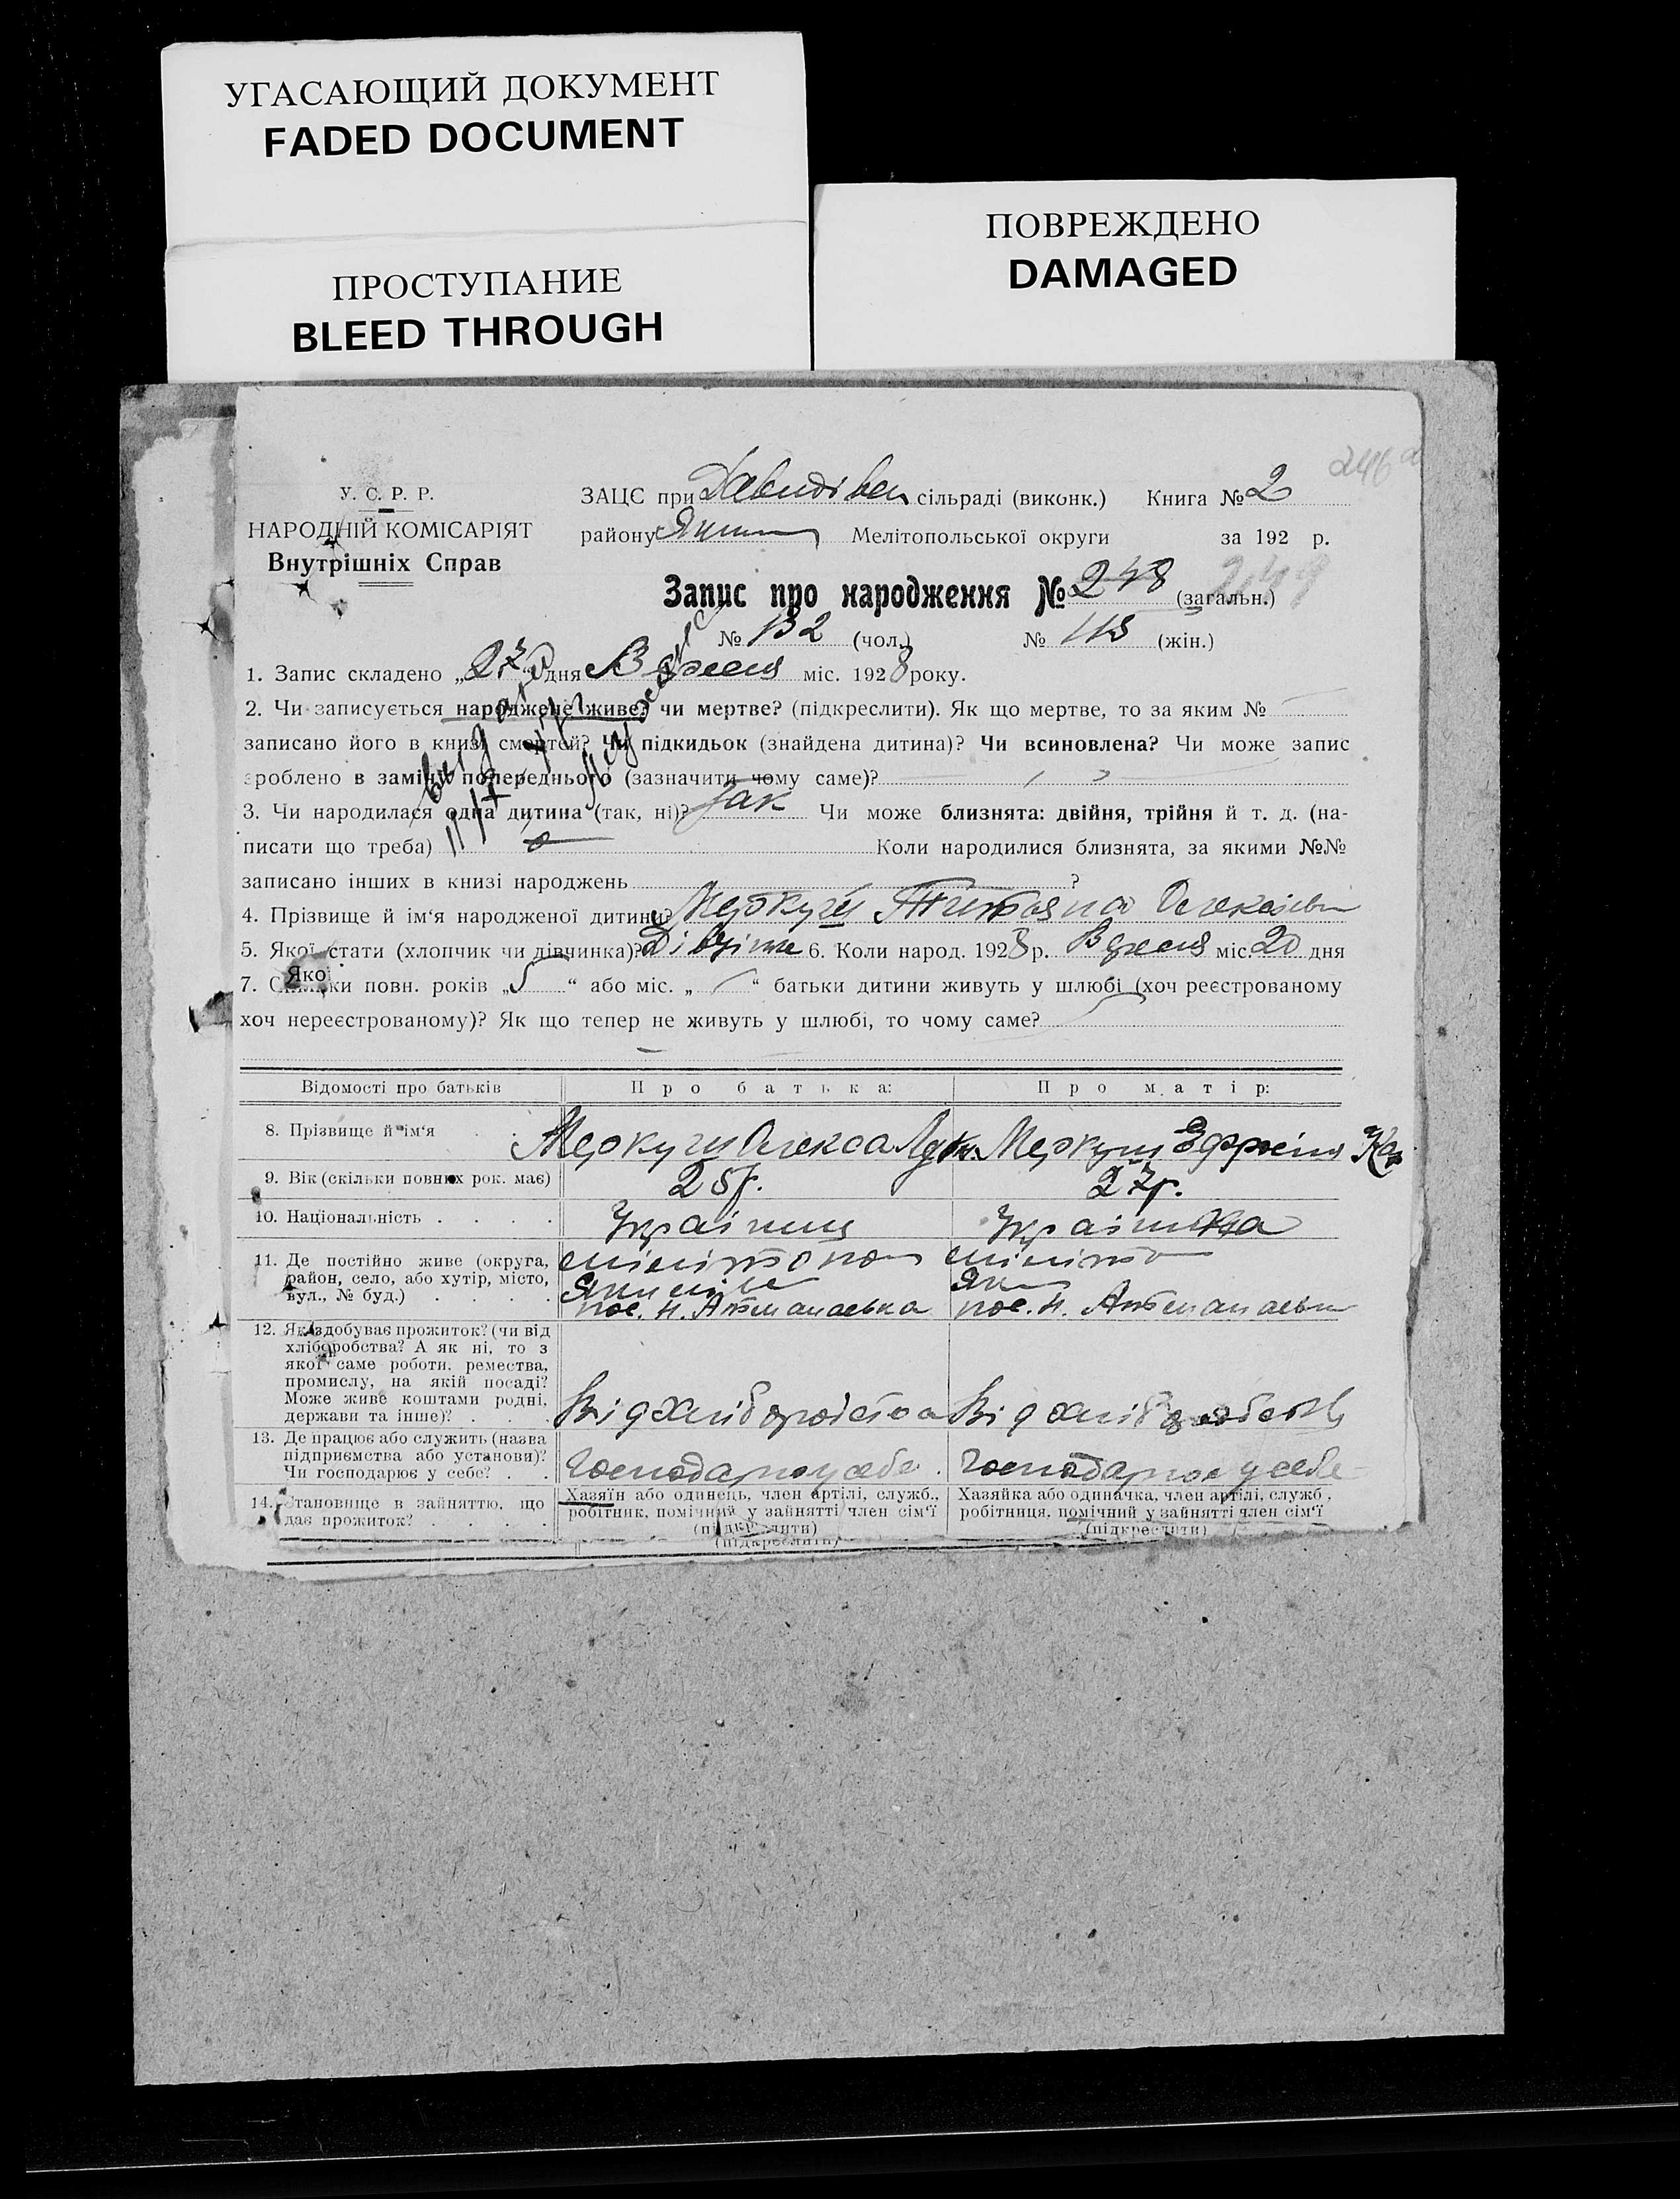 УГАСАЮЩИЙ ДОКУМЕНТ
FADED DOCUMENT
ПРОСТУПАНИЕ
BLEED THROUGH
ПОВРЕЖДЕНО
DAMAGED
246 а
У. С. Р. Р.
НАРОДНІЙ КОМІСАРІЯТ
Внутрішніх Справ
ЗАЦС при Давидівск сільраді (виконк.) Книга № 2
району Яким Мелітопольської округи за 192 р.
Запис про народження № 248 (загальн.) 249
№ 132 (чол.) № 115 (жін.)
1. Запис складено „27“ дня Вересня міс. 1928 року.
2. Чи записується народжене живе? чи мертве? (підкреслити). Як що мертве, то за яким №
записано його в книзі смертей? Чи підкидьок (знайдена дитина)? Чи всиновлена? Чи може запис
зроблено в заміну попереднього (зазначити чому саме)?
3. Чи народилася одна дитина (так, ні)? Так Чи може близнята: двійня, трійня й т. д. (на-
писати що треба) Коли народилися близнята, за якими №№
записано інших в книзі народжень ?
4. Прізвище й ім‘я народженої дитини? Меркущ Титяна Олексіївн
5. Якої стати (хлопчик чи дівчинка)? Дівчина 6. Коли народ. 1928 р. Вересня міс. 20 дня
Якої
7. Скільки повн. років „5“ або міс. „ “ батьки дитини живуть у шлюбі (хоч реєстрованому
хоч нереєстрованому)? Як що тепер не живуть у шлюбі, то чому саме?
Відомості про батьків Про батька: Про матір:
8. Прізвище й ім‘я Меркущ Олекса Лук. Меркущ Єфросіня
9. Вік (скільки повних рок. має) 25р. 27р.
10. Національність . . . . Українец Українка
11. Де постійно живе (округа,
район, село, або хутір, місто,
вул., № буд.) . . . .
Мілітопол Мілітоп
Якимів Яки
пос. Н. Атманаевка пос. Н. Атманаевк
12. Як здобуває прожиток? (чи від
хліборобства? А як ні, то з
якої саме роботи, ремества,
промислу, на якій посаді?
Може живе коштами родні,
держави та інше)? . . .
Від хлібороібства Від хліборобств
13. Де працює або служить (назва
підприємства або установи)?
Чи господарює у себе? . .
Господарює у себе. Господарює у себе
14. Становище в зайняттю, що
дає прожиток? . . . .
Хазяїн або одинець, член артілі, служб.,
робітник, помічний у зайнятті член сім‘ї
(підкреслити)
(підкреслити)
Хазяйка або одиначка, член артілі, служб.,
робітниця, помічний у зайнятті член сім‘ї
(підкреслити)